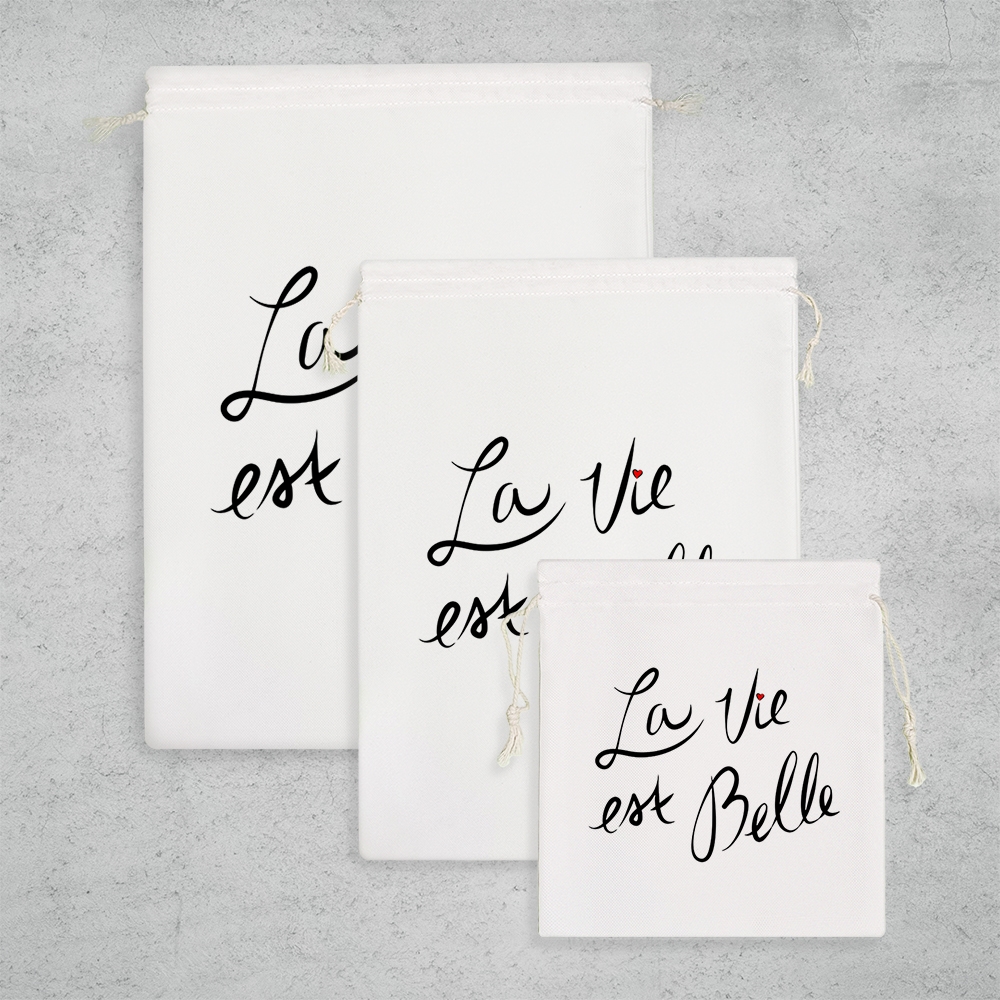 La
est
La Vie
est
La Vie
est Belle